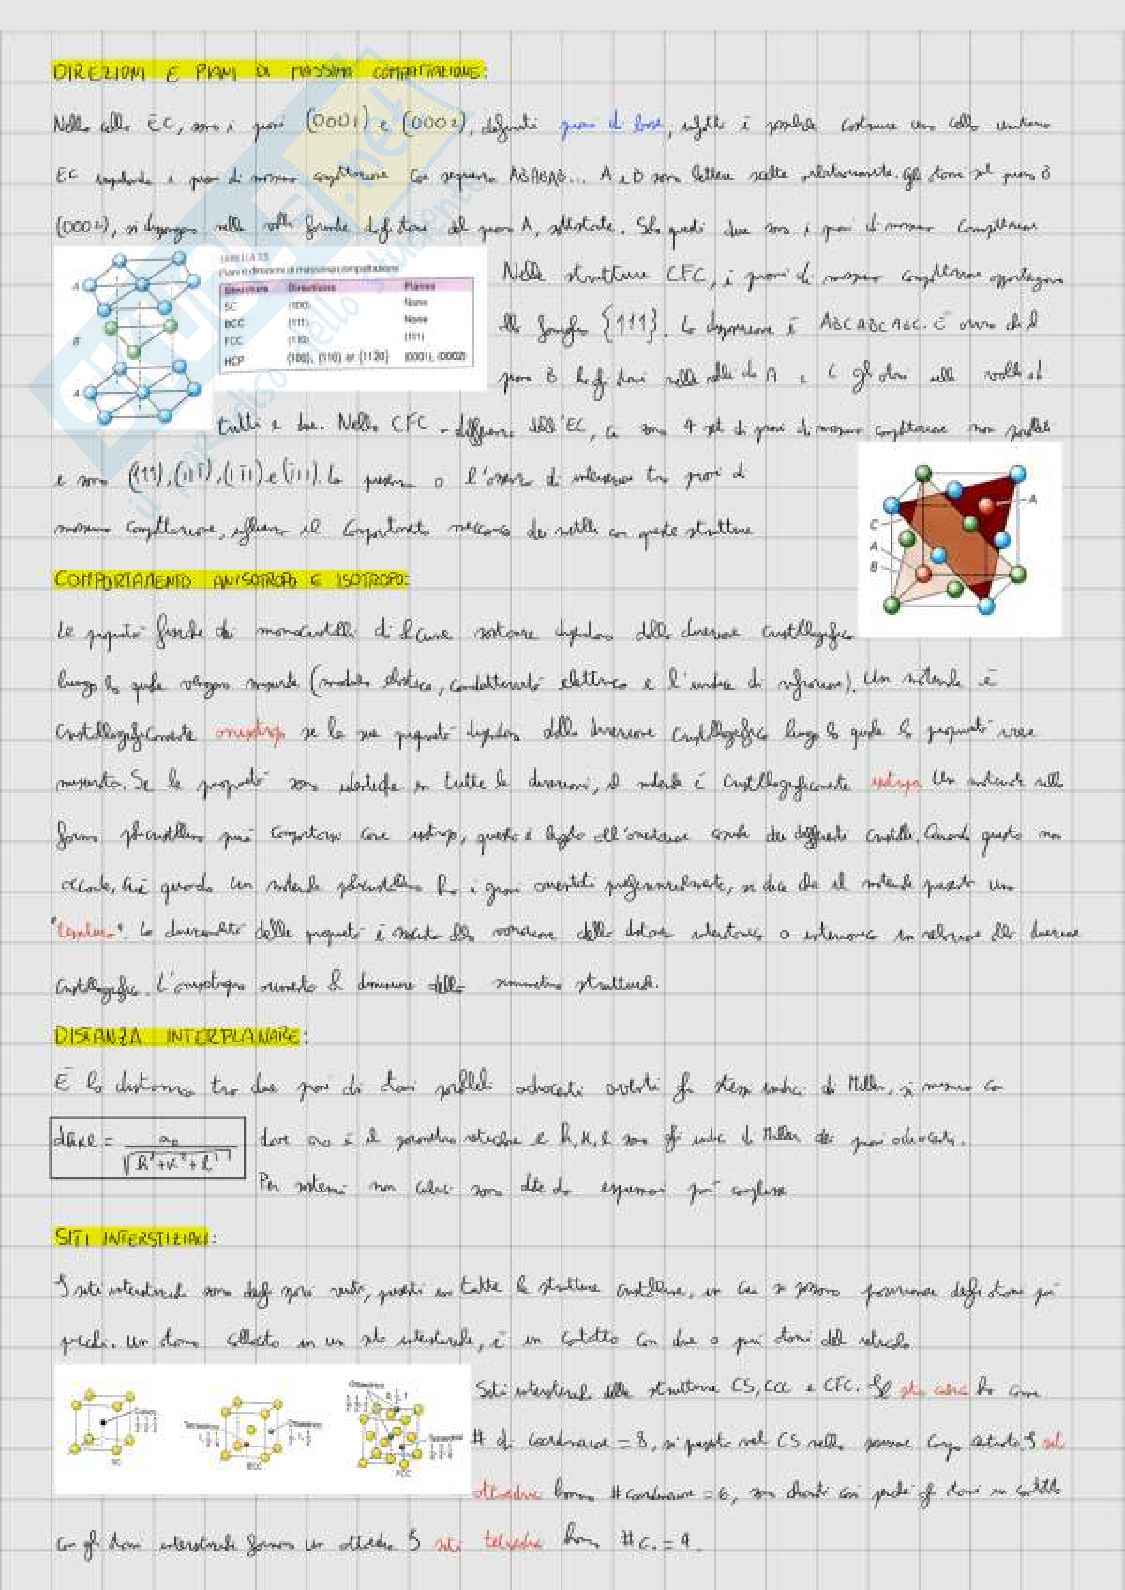 DIREZIONI E PIANI DI MASSIMA COMPATTAZIONE:
Nella cella EC, sono i piani (0001) e (0002), definiti piani di base, infatti è possibile costruire una cella unitaria
EC impilando i piani di massima compattazione con sequenza ABABAB... A e B sono lettere scelte arbitrariamente. Gli atomi sul piano B
(0002), si dispongono nelle valli formate dagli atomi del piano A, sottostante. Solo questi due sono i piani di massima compattazione
A
B
A
TABELLA 3.5
Piani e direzioni di massima compattazione
Structure Directions Planes
SC ⟨100⟩ None
BCC ⟨111⟩ None
FCC ⟨110⟩ {111}
HCP ⟨100⟩, ⟨110⟩ or ⟨1120⟩ (0001), (0002)
Nelle strutture CFC, i piani di massima compattazione appartengono
alla famiglia {111}. La disposizione è ABCABCABC. È ovvio che il
piano B ha gli atomi nelle valli di A e C gli atomi nelle valli di
tutti e due. Nella CFC a differenza dell'EC, ci sono 4 set di piani di massima compattazione non paralleli
e sono (111), (11̅1), (1̅11) e (̅111). La presenza o l'assenza di intersezione tra piani di
massima compattazione, influenza il comportamento meccanico dei metalli con queste strutture
C
A
B
A
COMPORTAMENTO ANISOTROPO E ISOTROPO:
Le proprietà fisiche dei monocristalli di alcune sostanze dipendono dalla direzione cristallografica
lungo la quale vengono misurate (modulo elastico, conduttività elettrica e l'indice di rifrazione). Un materiale è
cristallograficamente anisotropo se le sue proprietà dipendono dalla direzione cristallografica lungo la quale la proprietà viene
misurata. Se le proprietà sono identiche in tutte le direzioni, il materiale è cristallograficamente isotropo. Un materiale nella
forma policristallina può comportarsi come isotropo, questo è legato all'orientazione casuale dei differenti cristalli. Quando questo non
accade, cioè quando un materiale policristallino ha i grani orientati preferenzialmente, si dice che il materiale presenta una
"tessitura". La direzionalità delle proprietà è associata alla variazione della distanza interatomica o interionica in relazione alla direzione
cristallografica. L'anisotropia aumenta al diminuire della simmetria strutturale.
DISTANZA INTERPLANARE:
È la distanza tra due piani di atomi paralleli adiacenti aventi gli stessi indici di Miller, si misura con
dhkl = a₀ / √(h²+k²+l²)
dove a₀ è il parametro reticolare e h, k, l sono gli indici di Miller dei piani adiacenti.
Per sistemi non cubici sono date da espressioni più complesse
SITI INTERSTIZIALI:
I siti interstiziali sono degli spazi vuoti, presenti in tutte le strutture cristalline, in cui si possono posizionare degli atomi più
piccoli. Un atomo collocato in un sito interstiziale, è in contatto con due o più atomi del reticolo
SC
BCC
FCC
Siti interstiziali delle strutture CS, CCC e CFC. Il sito cubico ha come
# di coordinazione = 8, si presenta nel CS nella posizione corpo centrato. I siti
ottaedrici hanno #coordinazione = 6, sono chiamati così perché gli atomi in contatto
con gli atomi interstiziali formano un ottaedro. I siti tetraedrici hanno #c. = 4.